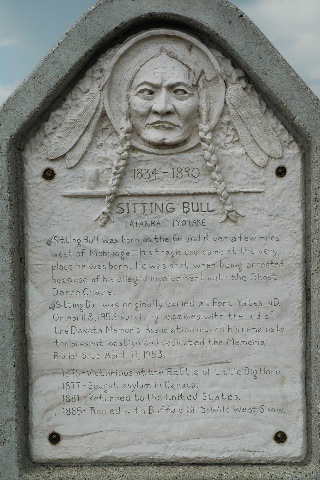 1834-1890
SITTING BULL
TATANKA IYOTAKE
Sitting Bull was born on the Grand River a few miles
west of Mobridge. His tragic end came at the very
place he was born. He was shot when being arrested
because of his alleged involvement with the Ghost
Dance Craze.
Sitting Bull was originally buried at Fort Yates, ND.
On April 8, 1953 surviving relatives with the aid of
the Dakota Memorial Association moved his remains to
the present location and dedicated the Memorial
Burial Site April 11, 1953.
Victorious at the Battle of Little Big Horn.
1877- Sought asylum in Canada.
1881- Returned to the United States.
1885- Toured with Buffalo Bill's Wild West Show.